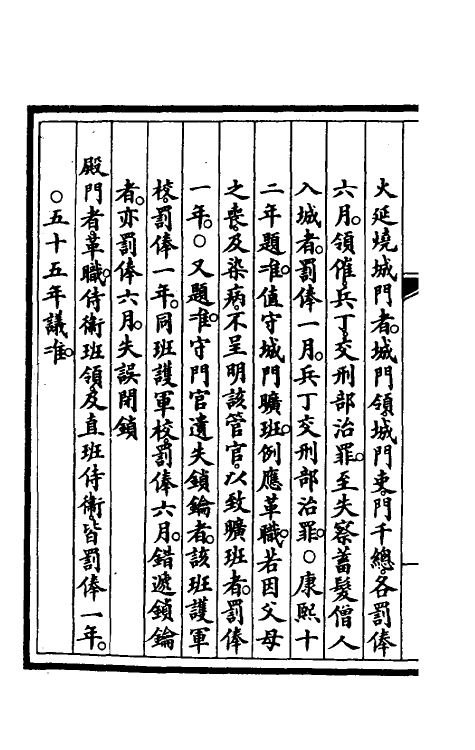 火延燒城門者。城門領城門吏。門千總。各罰俸
六月。領催兵丁。交刑部治罪。至失察蓄髮僧人
入城者。罰俸一月。兵丁交刑部治罪。○康熙十
二年題准。值守城門曠班。例應革職。若因父母
之喪。及染病。不呈明該管官。以致曠班者。罰俸
一年。○又題准。守門官遺失鎖鑰者。該班護軍
校。罰俸一年。同班護軍校。罰俸六月。錯遞鎖鑰
者。亦罰俸六月。失誤閉鎖
殿門者。革職。侍衛班領。及直班侍衛。皆罰俸一年。
○五十五年議准。